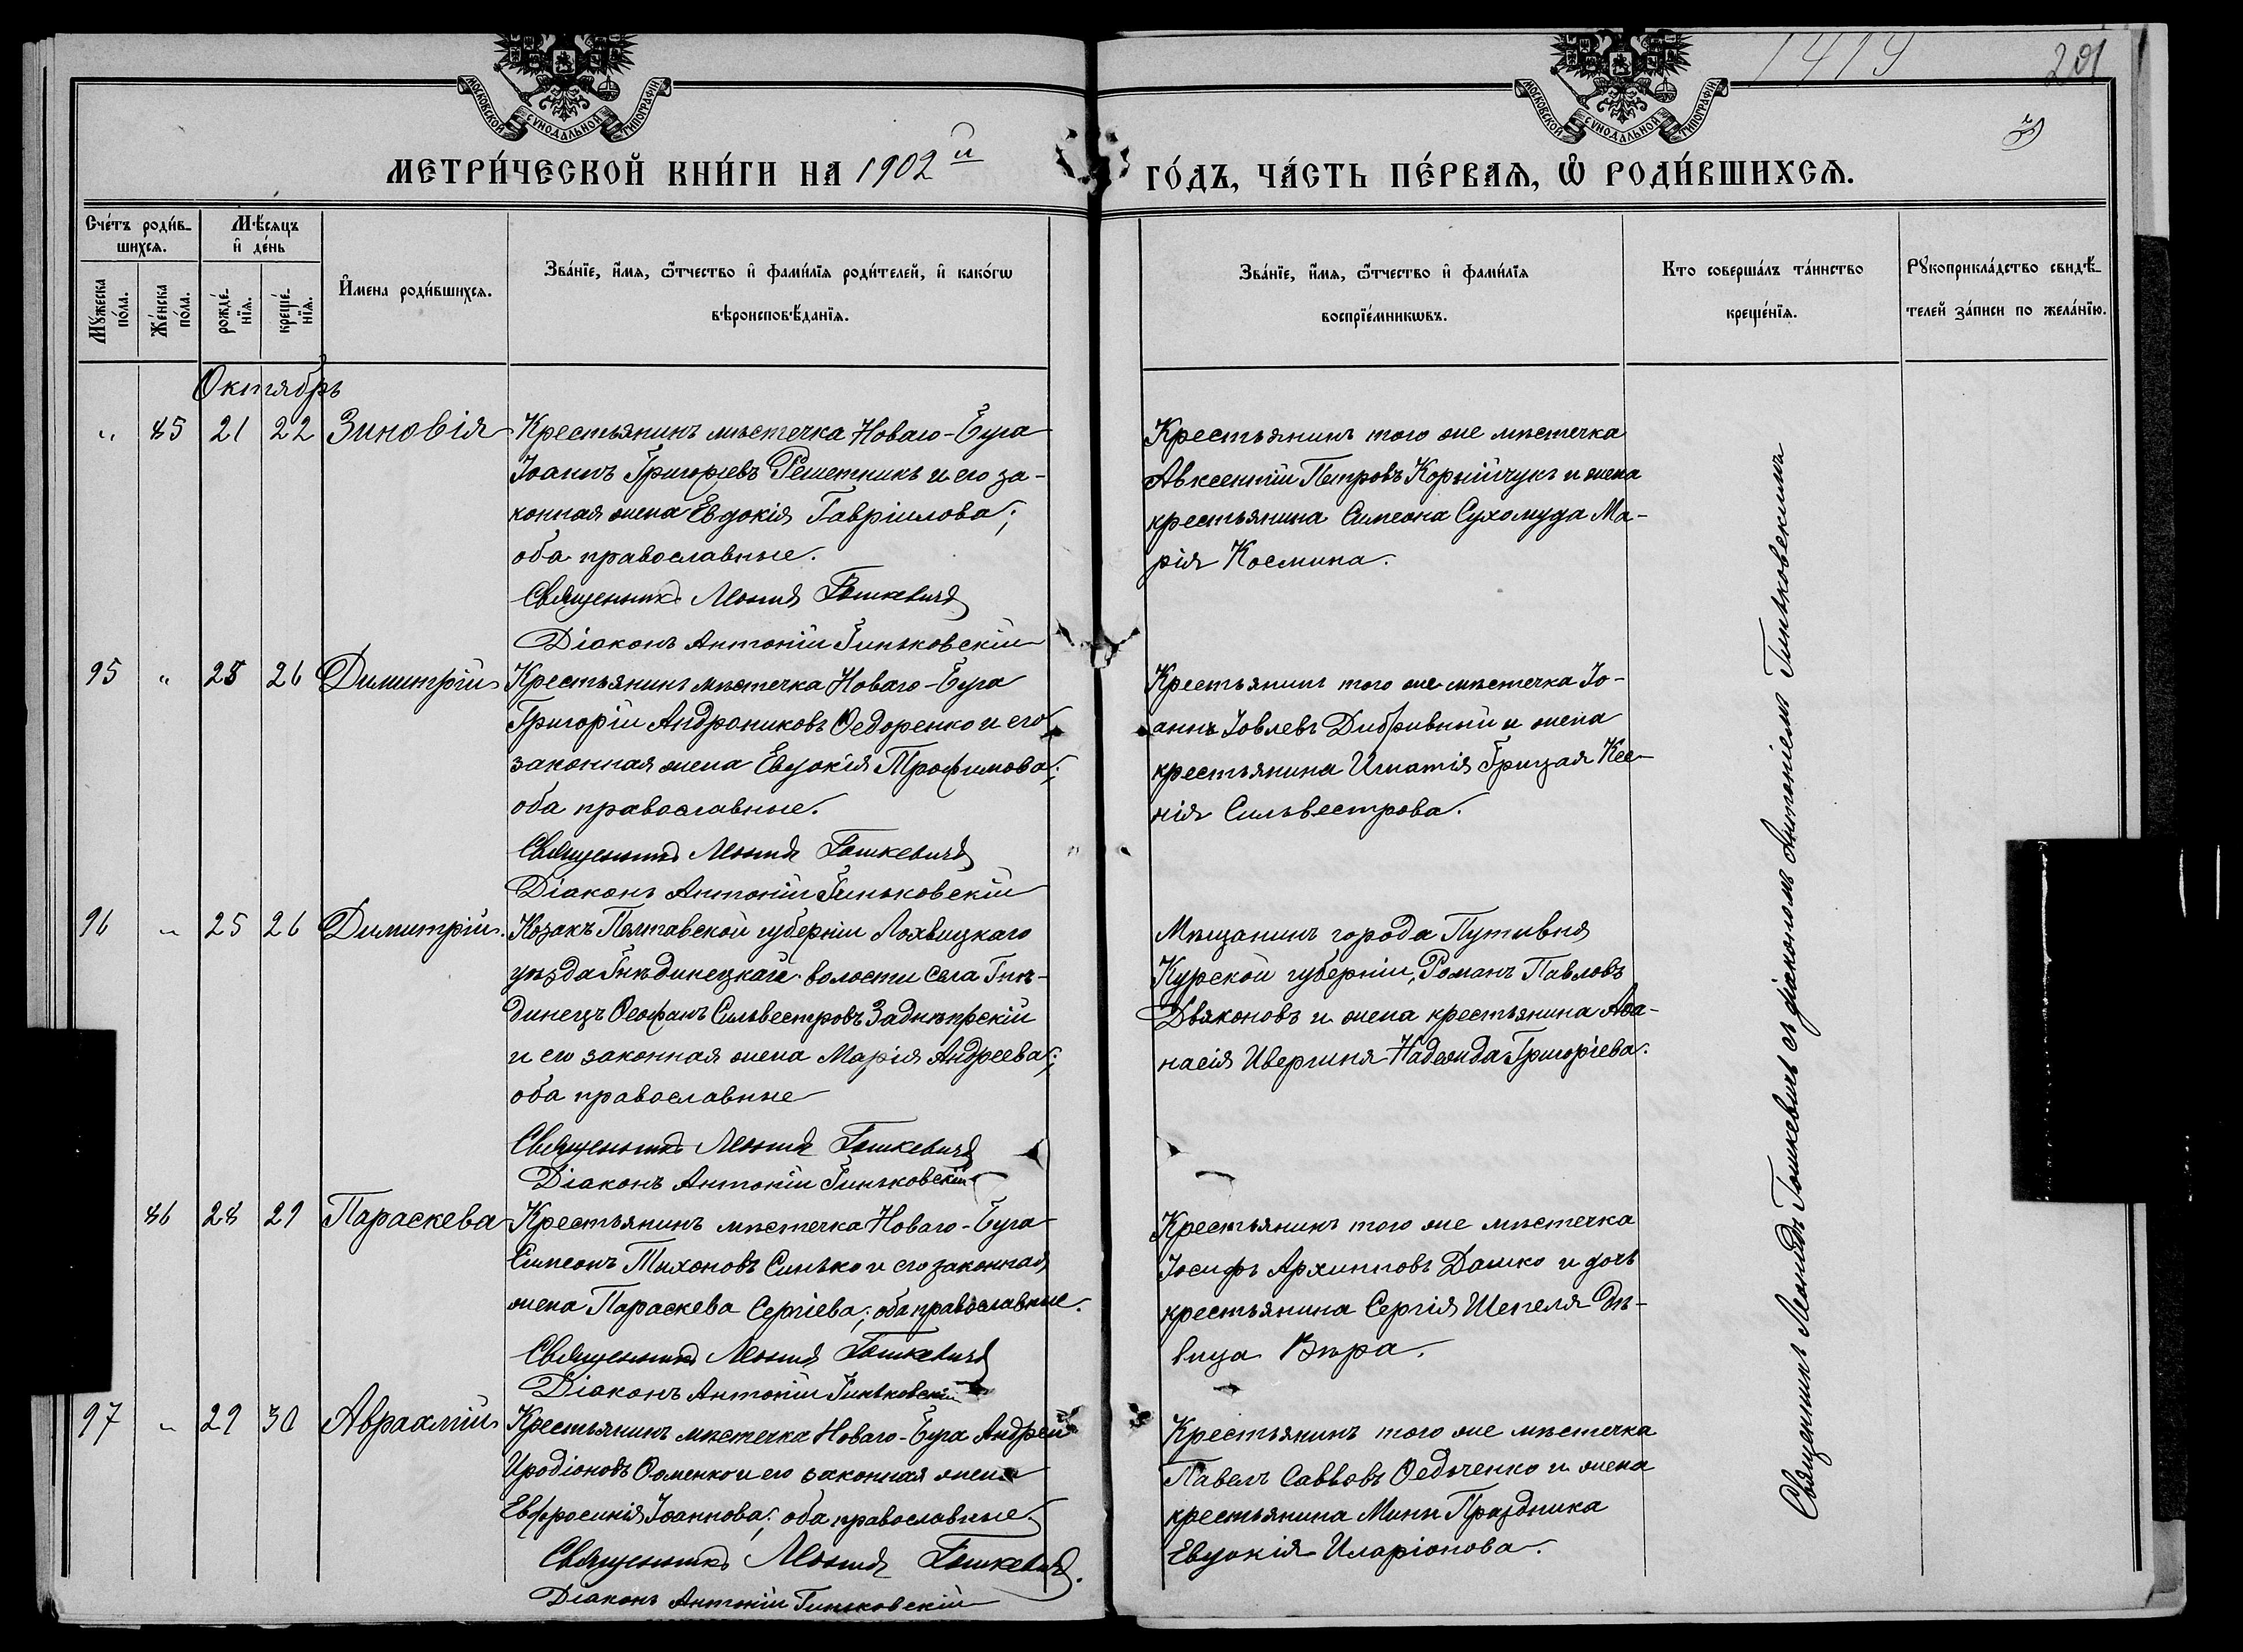 1419
201
МОСКОВСКОЙ СѴНОДАЛЬНОЙ ТИПОГРАФІИ
МОСКОВСКОЙ СѴНОДАЛЬНОЙ ТИПОГРАФІИ
МЕТРИ́ЧЕСКОЙ КНИ́ГИ НА 1902й ГО́ДЪ, ЧА́СТЬ ПЕ́РВАѦ, Ѡ҆ РОДИ́ВШИХСѦ.
Сче́тъ роди́в-
шихсѧ.
Мѣ́сѧцъ
и҆ де́нь
Мꙋ́жеска по́ла.
Же́нска по́ла.
рожде́-
нїѧ.
креще́-
нїѧ.
И҆мена роди́вшихсѧ.
Зва́нїе, и҆́мѧ, ѻ҆́тчество и҆ фами́лїѧ роди́телей, и҆ како́гѡ
вѣроисповѣ́данїѧ.
Зва́нїе, и҆́мѧ, ѻ҆́тчество и҆ фами́лїѧ
воспрїе́мникѡвъ.
Кто соверша́лъ та́инство
креще́нїѧ.
Рꙋкоприкла́дство свидѣ́-
телей за́писи по жела́нїю.
Октябрь
„ 85 21 22 Зиновія Крестьянинъ мѣстечка Новаго-Буга
Іоаннъ Григорьевъ Решетникъ и его за-
конная жена Евдокія Гавріилова;
оба православные.
Священникъ Леонидъ Гошкевичъ
Діаконъ Антоній Гиньковскій
Крестьянинъ того же мѣстечка
Авксентій Петровъ Корнійчукъ и жена
крестьянина Симеона Сухомуда Ма-
рія Космина.
95 „ 25 26 Димитрій Крестьянинъ мѣстечка Новаго-Буга
Григорій Андрониковъ Ѳедоренко и его
законная жена Евдокія Трофимова;
оба православные.
Священникъ Леонидъ Гошкевичъ
Діаконъ Антоній Гиньковскій
Крестьянинъ того же мѣстечка Іо-
аннъ Іовлевъ Дибривный и жена
крестьянина Игнатія Грицая Ксе-
нія Сильвестрова.
96 „ 25 26 Димитрій. Козакъ Полтавской губерніи Лохвицкаго
уѣзда Гнѣдинецкаго волости села Гнѣ-
динецъ Ѳеофанъ Сильвестровъ Заднѣпрскій
и его законная жена Марія Андреева;
оба православные
Священникъ Леонидъ Гошкевичъ
Діаконъ Антоній Гиньковскій
Мѣщанинъ города Путивля
Курской губерніи, Романъ Павловъ
Дьяконовъ и жена крестьянина Аѳа-
насія Ивергиня Надежда Григоріева.
86 28 29 Параскева Крестьянинъ мѣстечка Новаго-Буга
Симеонъ Тихоновъ Синько и его законная
жена Параскева Сергіева; оба православные.
Священникъ Леонидъ Гошкевичъ
Діаконъ Антоній Гиньковскій
Крестьянинъ того же мѣстечка
Іосифъ Архиповъ Дашко и дочь
крестьянина Сергія Шепеля дѣ-
вица Вѣра.
97 „ 29 30 Авраамій Крестьянинъ мѣстечка Новаго-Буга Андрей
Иродіоновъ Ѳоменко и его законная жена
Евфросинія Іоаннова; оба православные.
Священникъ Леонидъ Гошкевичъ.
Діаконъ Антоній Гиньковскій
Крестьянинъ того же мѣстечка
Павелъ Саввовъ Ѳедченко и жена
крестьянина Мины Праздника
Евдокія Иларіонова.
Священникъ Леонидъ Гошкевичъ съ діакономъ Антоніемъ Гиньковскимъ